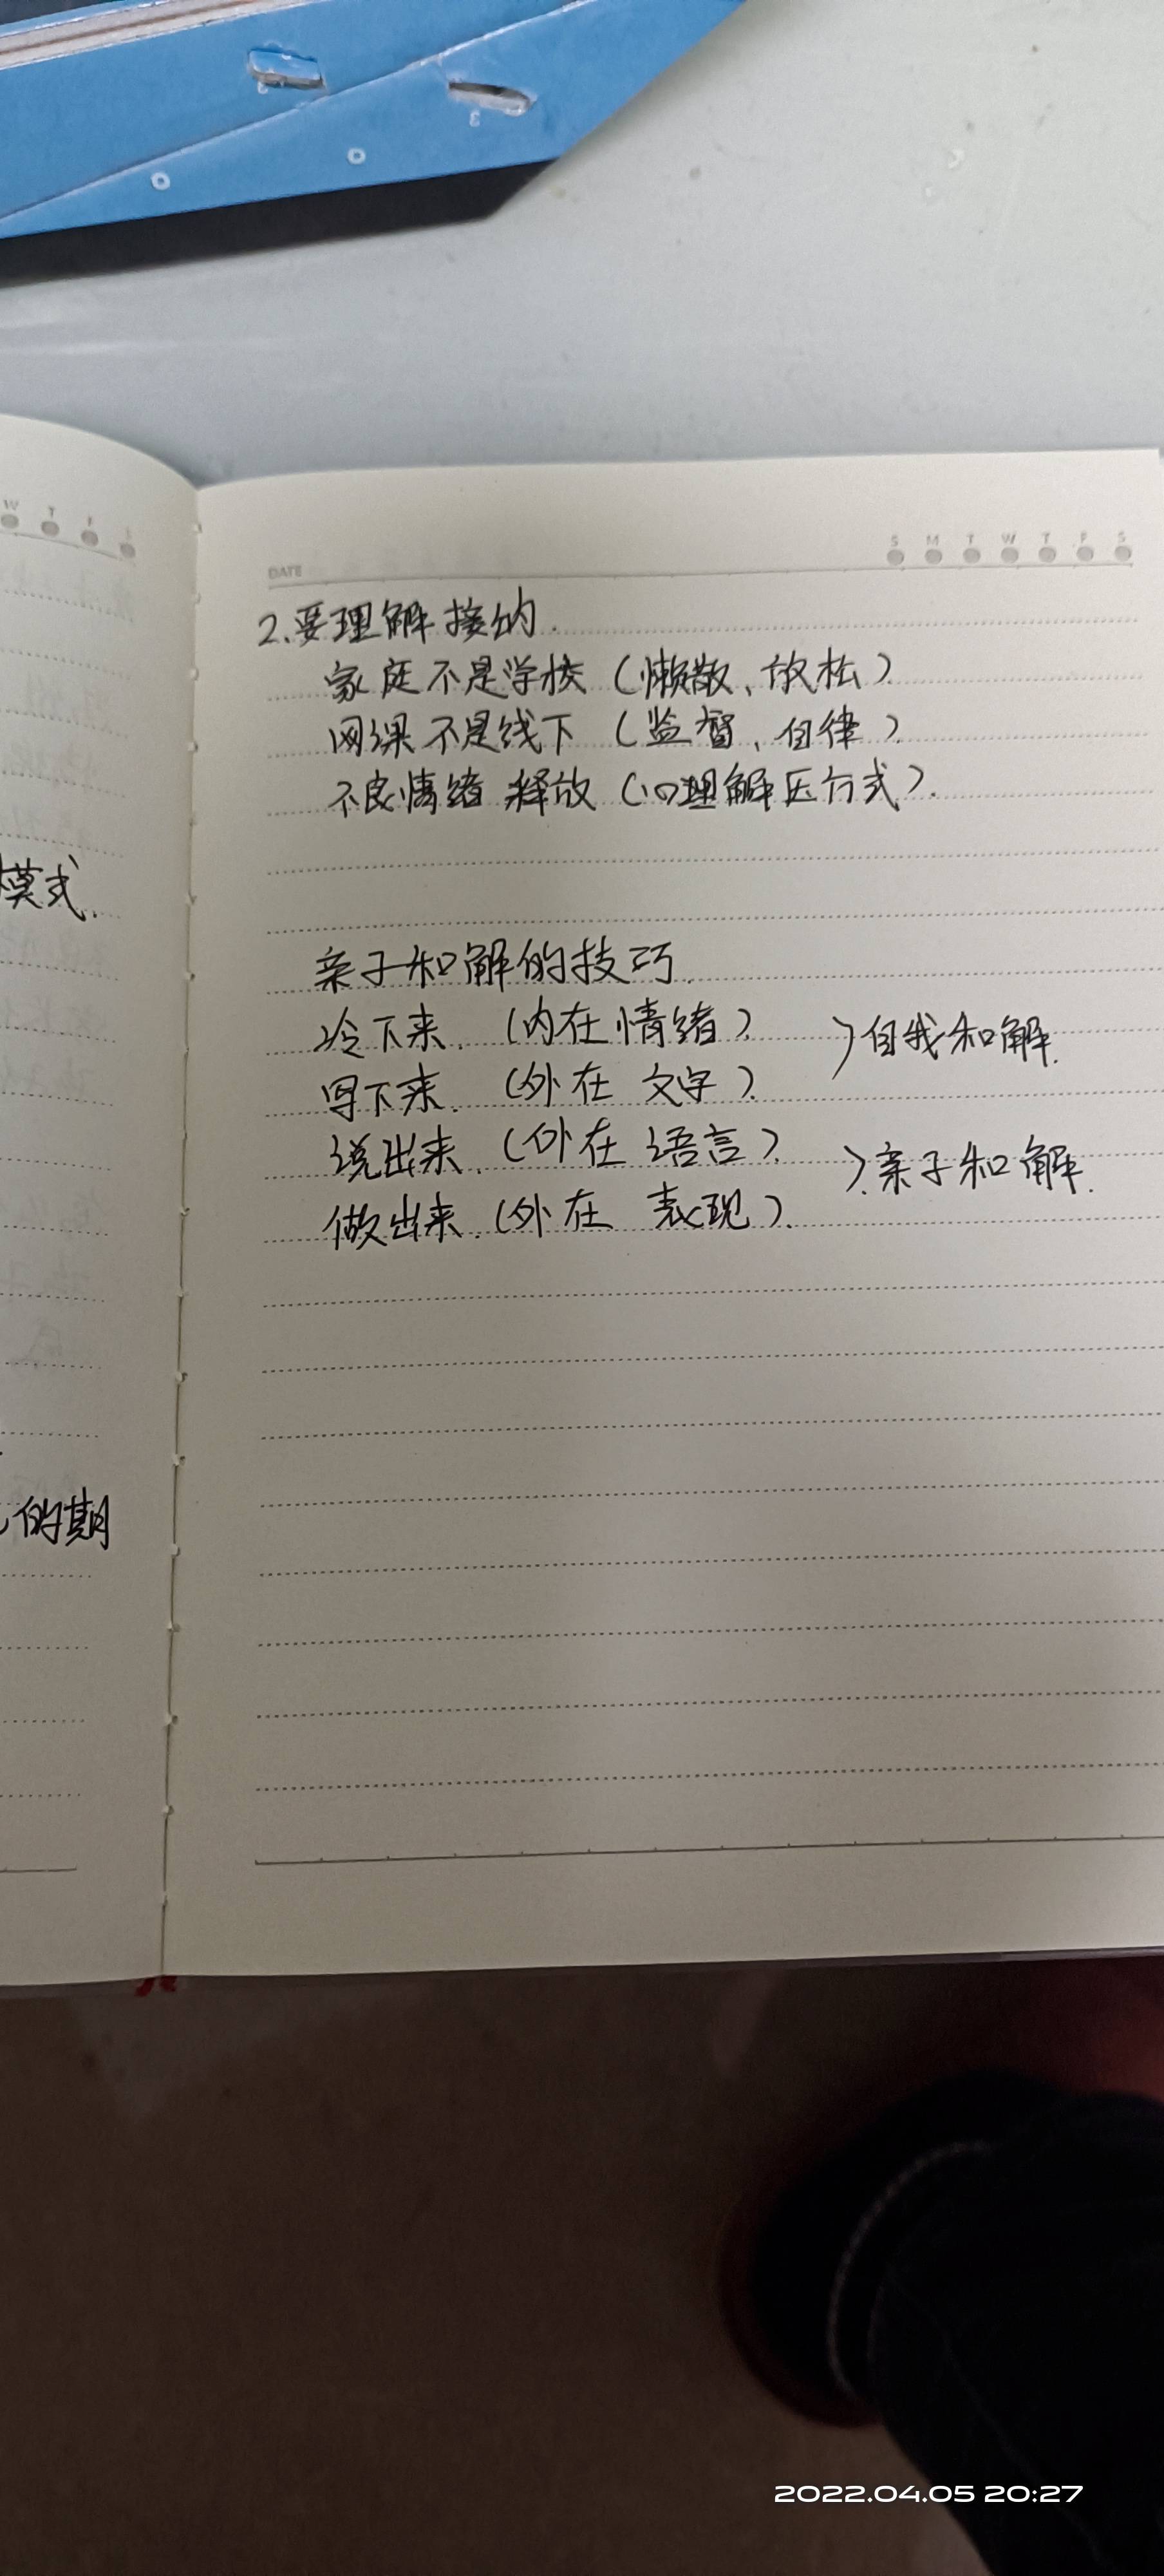 W T F S
模式.
的期
DATE
S M T W T F S
2.要理解接纳.
家庭不是学校（懒散、放松）
网课不是线下（监督、自律）
不良情绪 释放（心理解压方式）.
亲子和解的技巧.
冷下来.（内在情绪）
写下来.（外在 文字）.
}自我和解.
说出来.（外在 语言）.
做出来.（外在 表现）.
}亲子和解.
2022.04.05 20:27